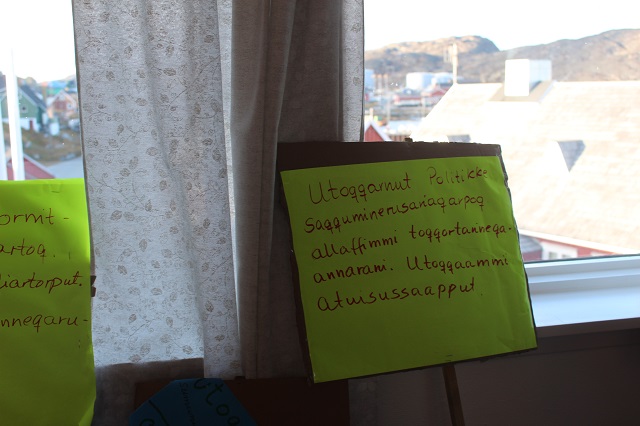 ormt-
artoq.
iartorput.
nneqaru-
Utoqqarnut Politikk-
saqquminerusariaqarpoq
allaffimmi toqqortanneqa-
annarani. Utoqqaammi
atuisussaapput
Utoq